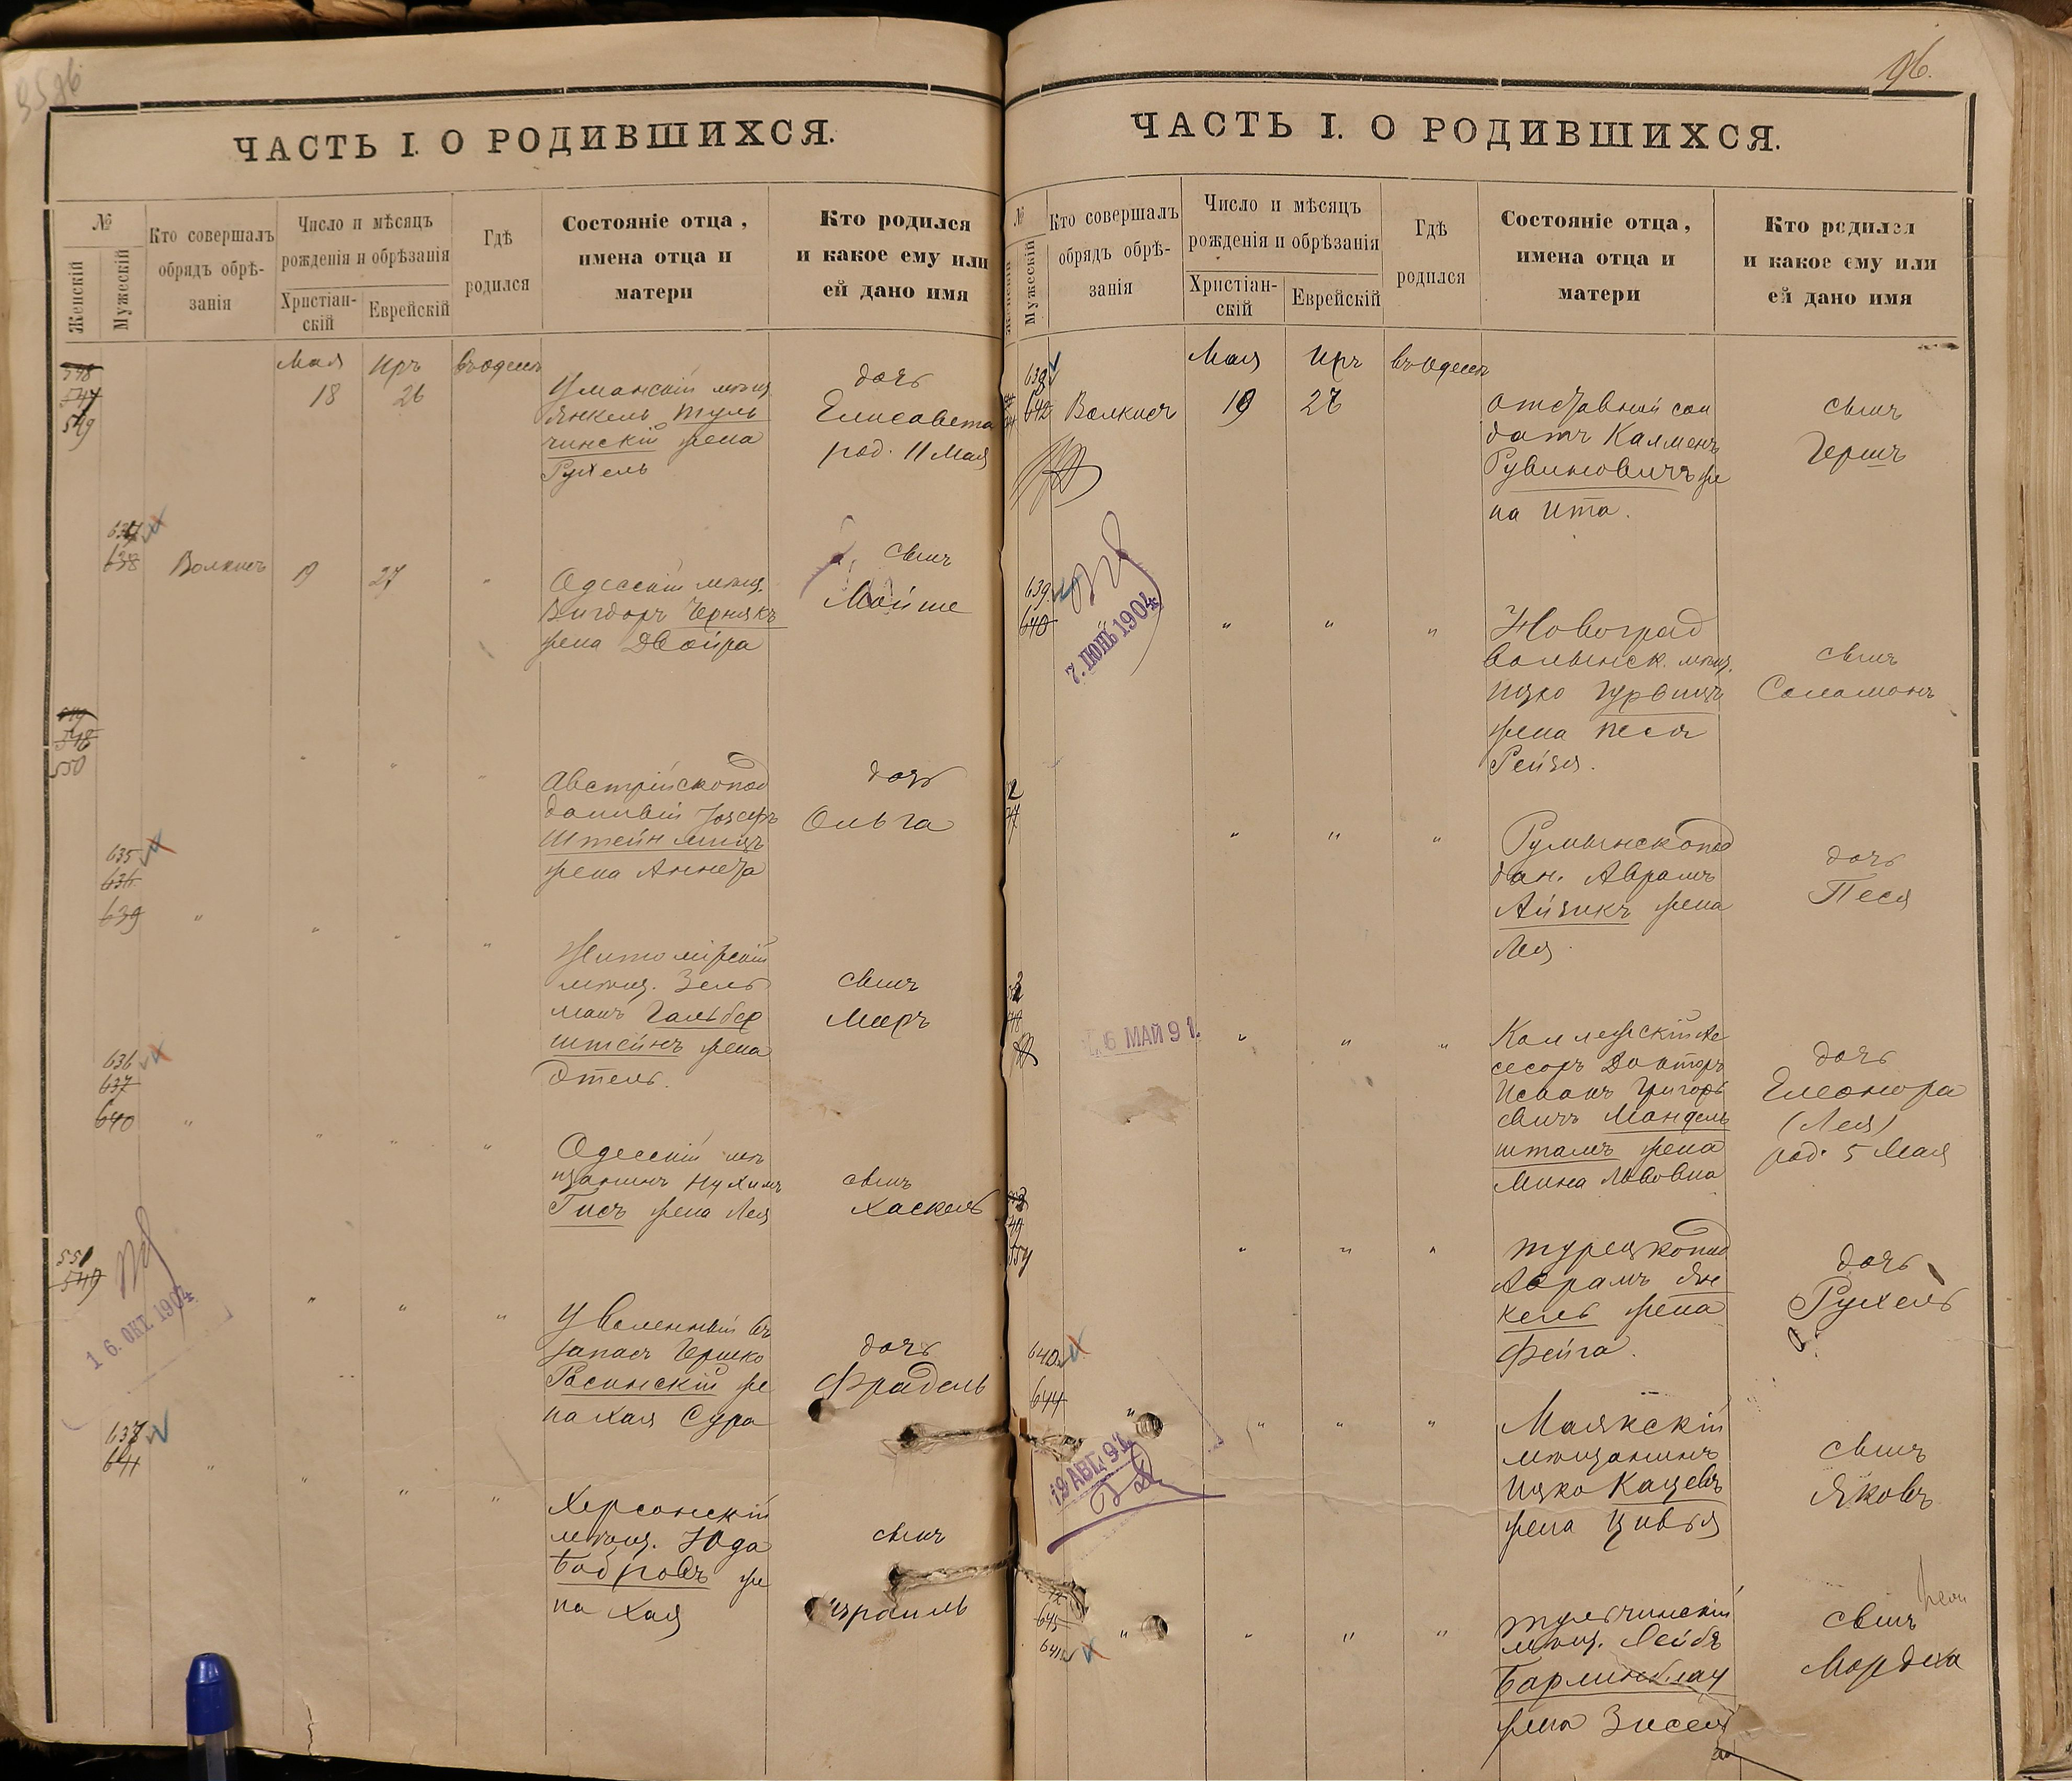 96.
ЧАСТЬ I. О РОДИВШИХСЯ.
№
Женскій
Мужескій
Кто совершалъ
обрядъ обрѣ-
занія
Число и мѣсяцъ
рожденія и обрѣзанія
Христіан-
скій
Еврейскій
Гдѣ
родился
Состояніе отца,
имена отца и
матери
Кто родился
и какое ему или
ей дано имя
Мая Иръ въ Одессѣ
549
18 26
Уманскій мѣщ.
Янкель Туль
чинскій жена
Рухель
дочь
Елисавета
род. 11 Мая
638
Волкисъ 19 27 "
Одесскій мѣщ.
Вигдоръ Чернякъ
жена Двойра
сынъ
Мойше
548
550
" " "
Австрійскопод
данный Іосефъ
Штейн
жена Аннета
дочь
Ольга
635
636
639
" " " "
Житомірскій
мѣщ. Зель
манъ Гальбер
штейнъ жена
Этель.
сынъ
Меръ
636
637
640
" " " "
Одесскій мѣ
щанинъ Нухимъ
Гисъ жена Лея
сынъ
Хаскель
551
549
16. ОКТ. 1904
" " "
Уволенный въ
запасъ Гершко
Росинскій же
на Хая Сура
дочь
Фрадель
641
" " " "
Херсонскій
мѣщ. Юда
Бобровъ же
на Хая
сынъ
Израиль
96.
ЧАСТЬ I. О РОДИВШИХСЯ.
№
Женскій
Мужескій
Кто совершалъ
обрядъ обрѣ-
занія
Число и мѣсяцъ
рожденія и обрѣзанія
Христіан-
скій
Еврейскій
Гдѣ
родился
Состояніе отца,
имена отца и
матери
Кто родился
и какое ему или
ей дано имя
Мая Иръ въ Одессѣ
642
Волкисъ 19 27
Отставной сол
датъ Калменъ
Рувиновичъ же
на Ита.
сынъ
Гершъ
639.
640
7. ІЮНЬ 1904
" " " "
Новоград
волынск. мѣщ.
Ицко Гурвицъ
жена Песя
Рейзя.
сынъ
Саламонъ
" " "
Румынскопод
дан. Аврамъ
Айзикъ жена
Лея
дочь
Песя
6 МАЙ 91.
" " "
Коллежскій Ас
сесоръ Докторъ
Исаакъ Григорь
евичъ Мандель
штамъ жена
Мина Львовна
дочь
Елеонора
(Лея)
род. 5 Мая
" " "
Турецкопод
Аврамъ Ян
кель жена
Фейга.
дочь
Рухель
640
644
19 АВГ. 91
" " " "
Маякскій
мѣщанинъ
Ицко Кацевъ
жена Цивья
сынъ
Яковъ
645
641
" " " "
Тульчинскій
мѣщ. Лейбъ
жена Зисея
сынъ
Мордка